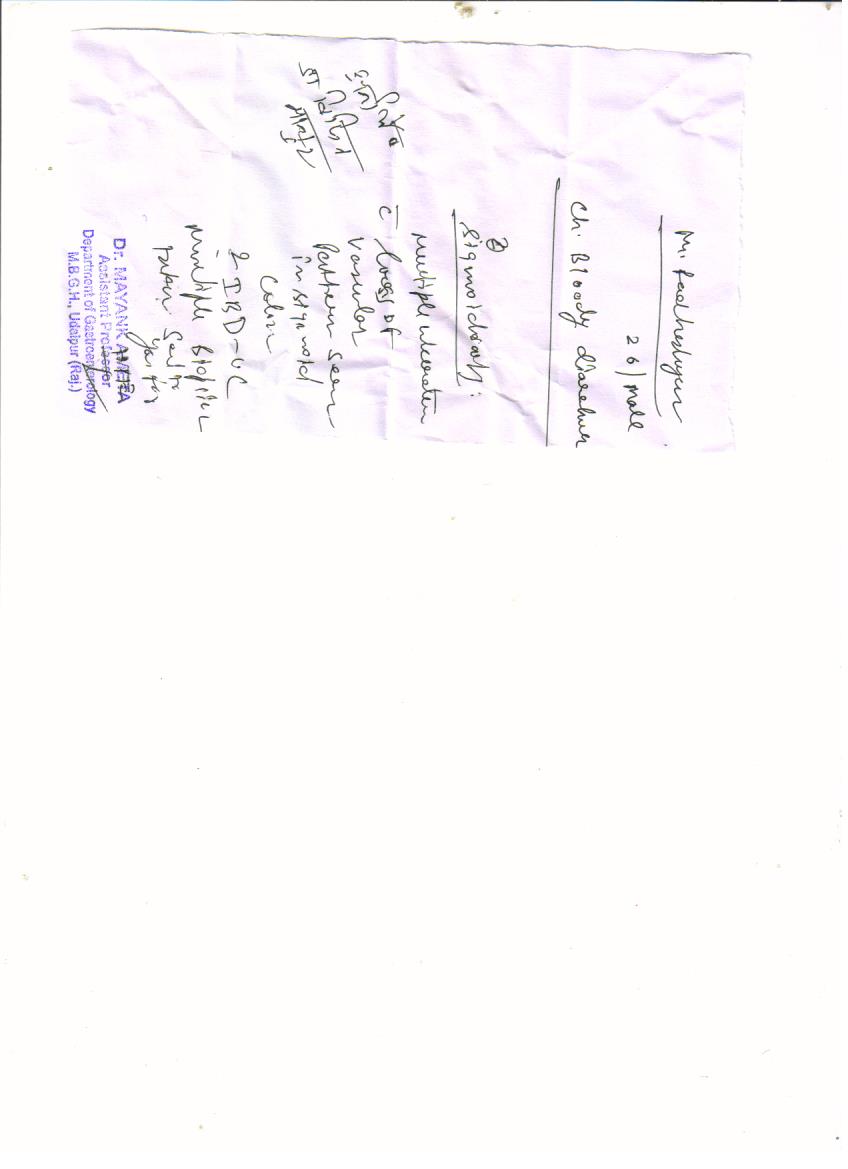 Mr. Radheshyam
26/male
Ch. Bloody diarrhea
Sigmoidoscopy:
multiple ulceration
c̄ loss of
vascular
Pattern seen
in sigmoid
Colon
? IBD-UC
multiple Biopsies
taken Sent to
Dr. MAYANK AMETA
Assistant Professor
Department of Gastroenterology
M.B.G.H., Udaipur (Raj.)